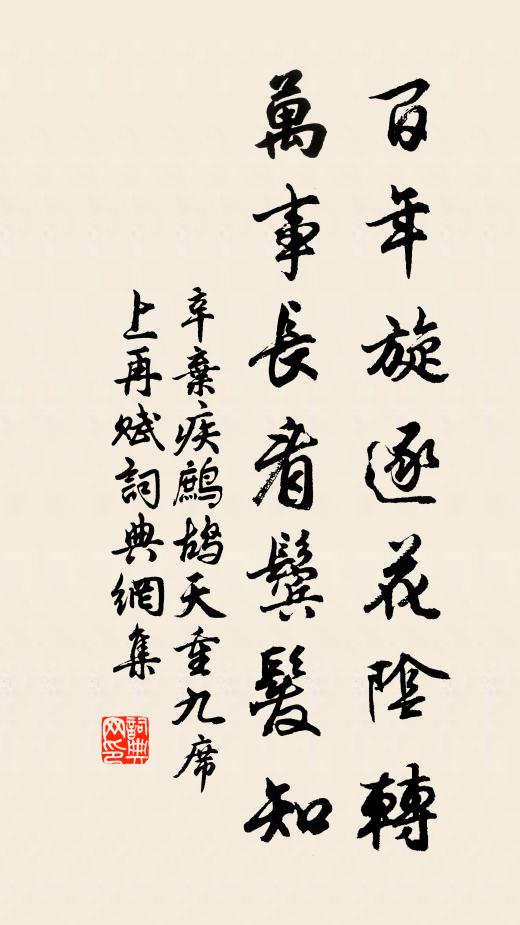 百年旋逐花陰轉
萬事長看鬢髮知
辛棄疾鷓鴣天重九席
上再賦詞典網集
詞典网印